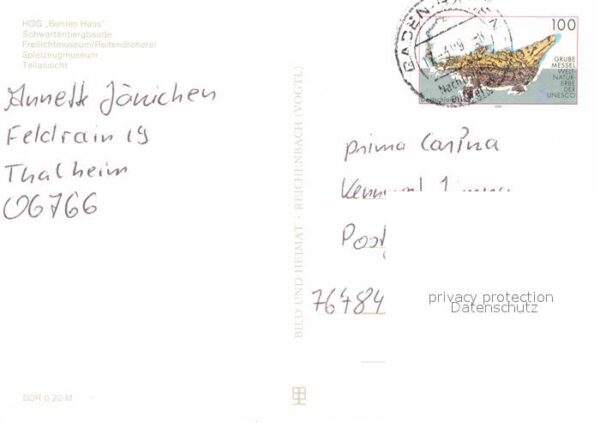 HOG „Buntes Haus"
Schwartenbergbaude
Freilichtmuseum/Reifendreherei
Spielzeugmuseum
Teilansicht
Annett Jänichen
Feldrain 19
Thalheim
06766
DDR 0,20 M
BILD UND HEIMAT · REICHENBACH (VOGTL)
BADEN-
100
GRUBE
MESSEL
WELT-
NATUR-
ERBE
DER
UNESCO
prima Carina
Kennwort
Post
76484
privacy protection
Datenschutz